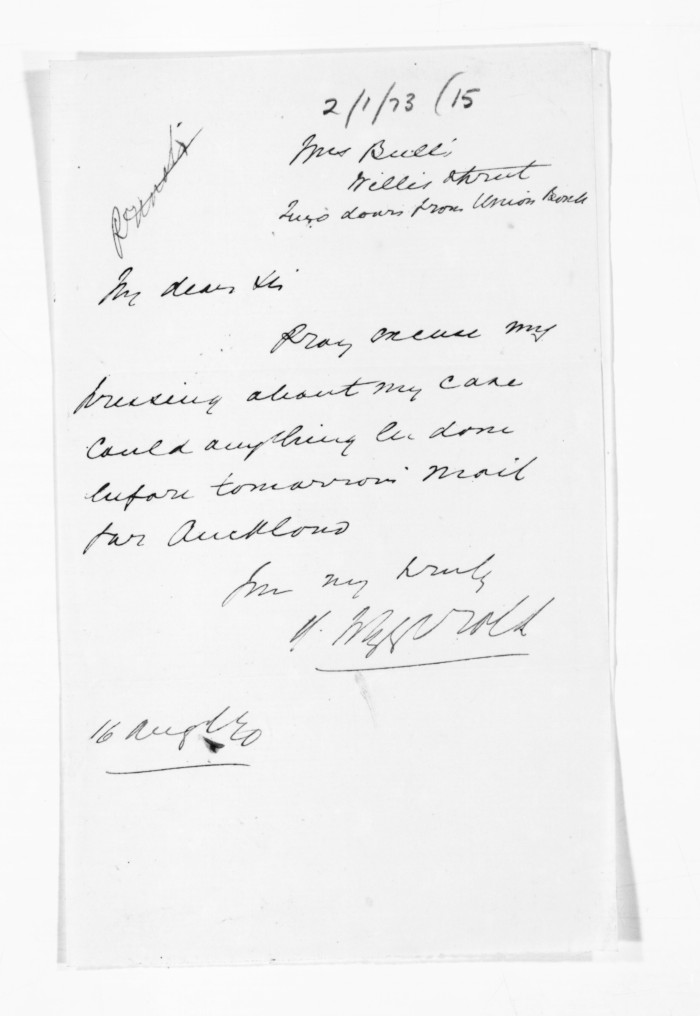 2/1/73 (15
Mrs Bull's
Willis Street
Two doors from Union Bank
My dear Sir
Pray excuse my
pressing about my case
Could anything be done
before tomorrow's mail
for Auckland
truly
16 Augt 70